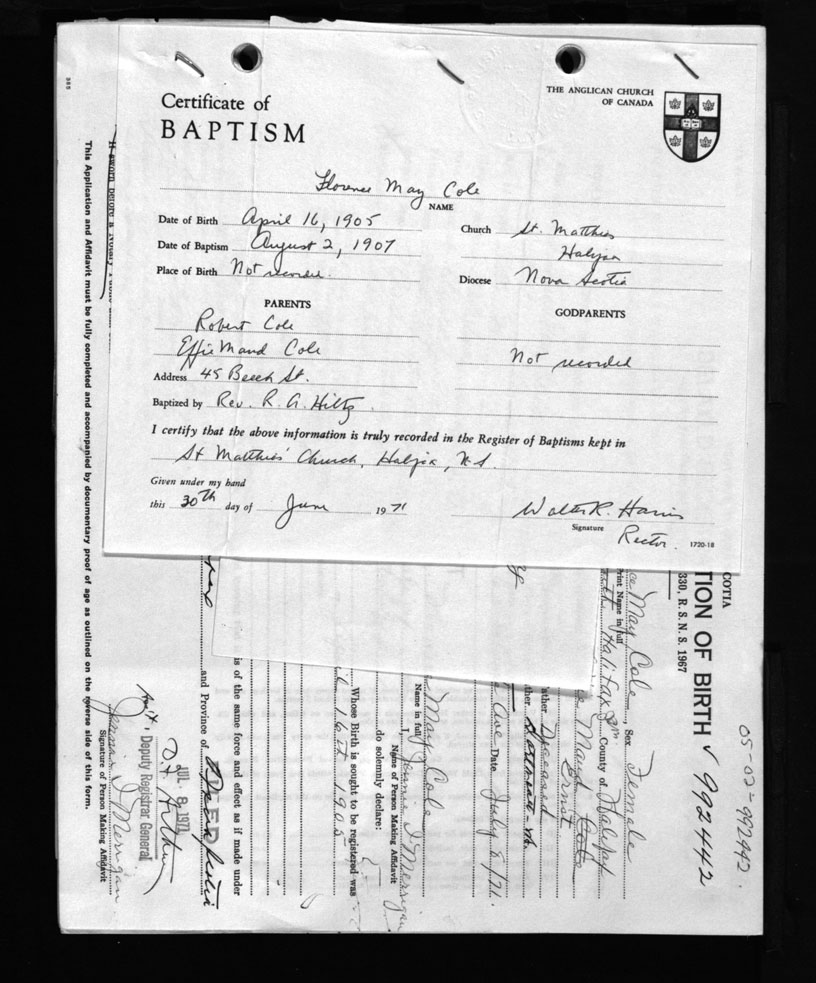 Certificate of
BAPTISM
THE ANGLICAN CHURCH
OF CANADA
Florence May Cole
NAME
Date of Birth April 16, 1905
Date of Baptism August 2, 1907
Place of Birth Not recorded.
Church St. Matthias
Halifax
Diocese Nova Scotia
PARENTS
Robert Cole
Effie Maud Cole
Address 45 Beech St.
Baptized by Rev. R. A. Hiltz.
GODPARENTS
Not recorded
I certify that the above information is truly recorded in the Register of Baptisms kept in
St Matthias' Church, Halifax, N.S.
Given under my hand
this 30th day of June 1971
Walter R. Harris
Signature
Rector.
1720-18
If sworn before a Notary Public
This Application and Affidavit must be fully completed and accompanied by documentary proof of age as outlined on the reverse side of this form.
05-02-992442.
COTIA
TION OF BIRTH ✓ 992442
330, R. S. N. S. 1967
ce May Cole, Sex Female
rint Name in full
Halifax County of Halifax
Maud Cole
Ernst
ather Deceased
ther
Ave Date July 8/71.
May Cole
Name in full
I, J. Merrigan
Name of Person Making Affidavit
do solemnly declare:
Whose Birth is sought to be registered was
16th 1905
is of the same force and effect as if made under
and Province of
JUL 8 1971
Deputy Registrar General
J. Merrigan
Signature of Person Making Affidavit